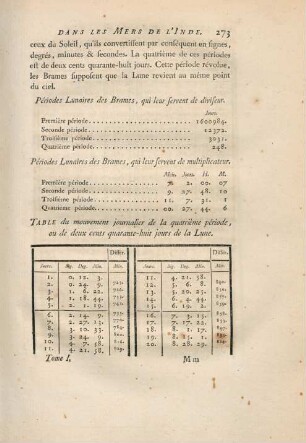 DANS LES MERS DE L'INDE. 273
ceux du Soleil, qu'ils convertissent par conséquent en signes,
degrés, minutes & secondes. La quatrième de ces périodes
est de deux cents quarante-huit jours. Cette période révolue,
les Brames supposent que la Lune revient au même point
du ciel.
Périodes Lunaires des Brames, qui leur servent de diviseur.
Jours.
Première période 1600984.
Seconde période 12372.
Troisième période 3031.
Quatrième période 248.
Périodes Lunaires des Brames, qui leur servent de multiplicateur.
Première période 2. 00. 07
Seconde période 9. 27. 48. 10
Troisième période 11. 7. 31. 1
Quatrième période 00. 27. 44. 6
TABLE du mouvement journalier de la quatrième période,
ou de deux cents quarante-huit jours de la Lune.
Différ. Différ.
Jours. Sig. Deg. Min. Min. Jours. Sig. Deg. Min. Min.
1. 0. 12. 3. 11. 4. 21. 58.
2. 0. 24. 9. 12. 5. 6. 8.
3. 1. 6. 22. 13. 5. 20. 33.
4. 1. 18. 44. 14. 6. 4. 44.
5. 2. 1. 19. 15. 6. 19.
6. 2. 14. 9. 16. 7. 3. 41.
7. 2. 27. 17. 7. 18.
8. 3. 10. 18. 8. 1. 17.
9. 3. 19. 8.
10. 4. 7. 58. 20. 8. 28. 29.
11. 4. 21. 58.
Tome I. M m